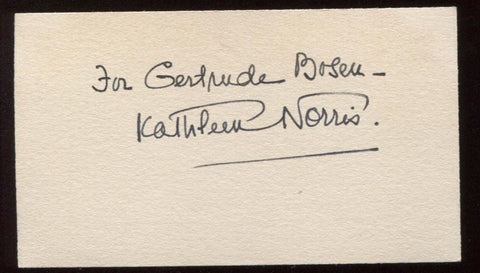 For Gertrude Bosen –
Kathleen Norris.